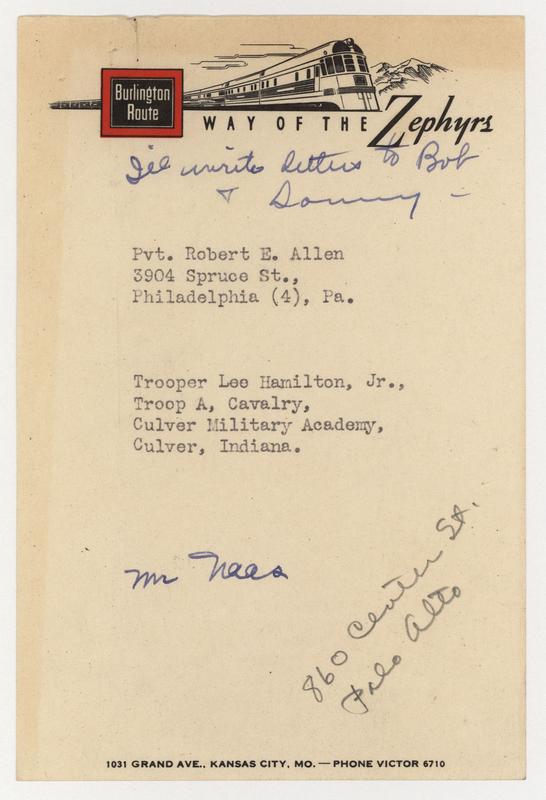 Burlington
Route
WAY OF THE Zephyrs
I'll write letters to Bob
+ Sonny —
Pvt. Robert E. Allen
3904 Spruce St.,
Philadelphia (4), Pa.
Trooper Lee Hamilton, Jr.,
Troop A, Cavalry,
Culver Military Academy,
Culver, Indiana.
Mr
860 Center St.
Palo Alto
1031 GRAND AVE., KANSAS CITY, MO. — PHONE VICTOR 6710